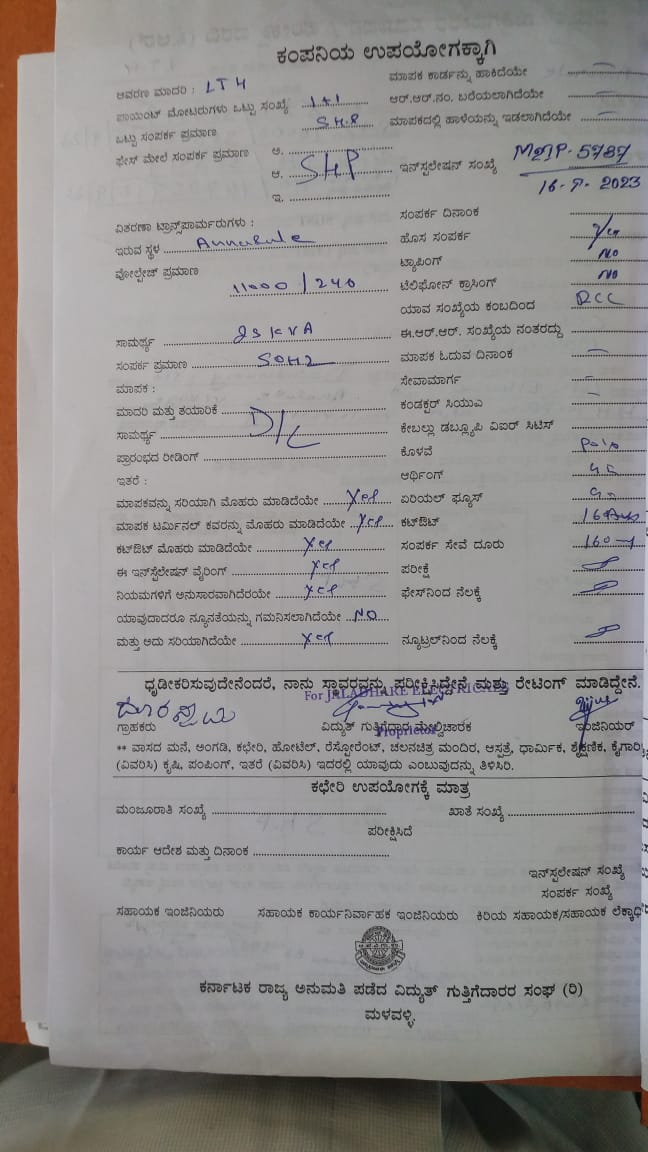 ಕಂಪನಿಯ ಉಪಯೋಗಕ್ಕಾಗಿ
ಆವರಣ ಮಾದರಿ : LT4
ಪಾಯಿಂಟ್ ಮೋಟರುಗಳು ಒಟ್ಟು ಸಂಖ್ಯೆ 1+1
ಒಟ್ಟು ಸಂಪರ್ಕ ಪ್ರಮಾಣ 5H.P
ಫೇಸ್ ಮೇಲೆ ಸಂಪರ್ಕ ಪ್ರಮಾಣ ಅ.
ಆ. 5HP
ಇ.
ವಿತರಣಾ ಟ್ರಾನ್ಸ್‌ಪಾರ್ಮರುಗಳು :
ಇರುವ ಸ್ಥಳ
ವೋಲ್ಟೇಜ್ ಪ್ರಮಾಣ
11000 / 240
ಸಾಮರ್ಥ್ಯ 25 KVA
ಸಂಪರ್ಕ ಪ್ರಮಾಣ 50HZ
ಮಾಪಕ :
ಮಾದರಿ ಮತ್ತು ತಯಾರಿಕೆ
ಸಾಮರ್ಥ್ಯ D/L
ಪ್ರಾರಂಭದ ರೀಡಿಂಗ್
ಇತರೆ :
ಮಾಪಕವನ್ನು ಸರಿಯಾಗಿ ಮೊಹರು ಮಾಡಿದೆಯೇ Yes
ಮಾಪಕ ಟರ್ಮಿನಲ್ ಕವರನ್ನು ಮೊಹರು ಮಾಡಿದೆಯೇ Yes
ಕಟ್‌ಔಟ್ ಮೊಹರು ಮಾಡಿದೆಯೇ Yes
ಈ ಇನ್‌ಸ್ಟಲೇಷನ್ ವೈರಿಂಗ್ Yes
ನಿಯಮಗಳಿಗೆ ಅನುಸಾರವಾಗಿದೆರಯೇ Yes
ಯಾವುದಾದರೂ ನ್ಯೂನತೆಯನ್ನು ಗಮನಿಸಲಾಗಿದೆಯೇ NO
ಮತ್ತು ಅದು ಸರಿಯಾಗಿದೆಯೇ Yes
ಮಾಪಕ ಕಾರ್ಡನ್ನು ಹಾಕಿದೆಯೇ
ಆರ್.ಆರ್.ನಂ. ಬರೆಯಲಾಗಿದೆಯೇ
ಮಾಪಕದಲ್ಲಿ ಹಾಳೆಯನ್ನು ಇಡಲಾಗಿದೆಯೇ
ಇನ್‌ಸ್ಟಲೇಷನ್ ಸಂಖ್ಯೆ 5787
2023
ಸಂಪರ್ಕ ದಿನಾಂಕ
ಹೊಸ ಸಂಪರ್ಕ
ಟ್ಯಾಪಿಂಗ್ NO
ಟೆಲಿಫೋನ್ ಕ್ರಾಸಿಂಗ್ NO
ಯಾವ ಸಂಖ್ಯೆಯ ಕಂಬದಿಂದ RCC
ಈ.ಆರ್.ಆರ್. ಸಂಖ್ಯೆಯ ನಂತರದ್ದು
ಮಾಪಕ ಓದುವ ದಿನಾಂಕ
ಸೇವಾಮಾರ್ಗ
ಕಂಡಕ್ಟರ್ ಸಿಯುಎ
ಕೇಬಲ್ಲು ಡಬ್ಲ್ಯೂಪಿ ವಿಐರ್ ಸಿಟಿಸ್
ಕೊಳವೆ
ಅರ್ಥಿಂಗ್
ಏರಿಯಲ್ ಫ್ಯೂಸ್
ಕಟ್‌ಔಟ್
ಸಂಪರ್ಕ ಸೇವೆ ದೂರು
ಪರೀಕ್ಷೆ
ಫೇಸ್‌ನಿಂದ ನೆಲಕ್ಕೆ
ನ್ಯೂಟ್ರಲ್‌ನಿಂದ ನೆಲಕ್ಕೆ
ಧೃಡೀಕರಿಸುವುದೇನೆಂದರೆ, ನಾನು ಸ್ಥಾವರವನ್ನು ಪರೀಕ್ಷಿಸಿದ್ದೇನೆ ಮತ್ತು ರೇಟಿಂಗ್ ಮಾಡಿದ್ದೇನೆ.
For JALADHARE ELECTRICALS
ಗ್ರಾಹಕರು ವಿದ್ಯುತ್ ಗುತ್ತಿಗೆದಾರ ಮೇಲ್ವಿಚಾರಕ ಇಂಜಿನಿಯರ್
Proprietor
** ವಾಸದ ಮನೆ, ಅಂಗಡಿ, ಕಛೇರಿ, ಹೋಟೆಲ್, ರೆಸ್ಟೋರೆಂಟ್, ಚಲನಚಿತ್ರ ಮಂದಿರ, ಆಸ್ಪತ್ರೆ, ಧಾರ್ಮಿಕ, ಶೈಕ್ಷಣಿಕ,
(ವಿವರಿಸಿ) ಕೃಷಿ, ಪಂಪಿಂಗ್, ಇತರೆ (ವಿವರಿಸಿ) ಇದರಲ್ಲಿ ಯಾವುದು ಎಂಬುವುದನ್ನು ತಿಳಿಸಿರಿ.
ಕಛೇರಿ ಉಪಯೋಗಕ್ಕೆ ಮಾತ್ರ
ಮಂಜೂರಾತಿ ಸಂಖ್ಯೆ ಖಾತೆ ಸಂಖ್ಯೆ
ಪರೀಕ್ಷಿಸಿದೆ
ಕಾರ್ಯ ಆದೇಶ ಮತ್ತು ದಿನಾಂಕ
ಇನ್‌ಸ್ಟಲೇಷನ್ ಸಂಖ್ಯೆ
ಸಂಪರ್ಕ ಸಂಖ್ಯೆ
ಸಹಾಯಕ ಇಂಜಿನಿಯರು ಸಹಾಯಕ ಕಾರ್ಯನಿರ್ವಾಹಕ ಇಂಜಿನಿಯರು ಕಿರಿಯ ಸಹಾಯಕ/ಸಹಾಯಕ
ಕರ್ನಾಟಕ ರಾಜ್ಯ ಅನುಮತಿ ಪಡೆದ ವಿದ್ಯುತ್ ಗುತ್ತಿಗೆದಾರರ ಸಂಘ (ರಿ)
ಮಳವಳ್ಳಿ.